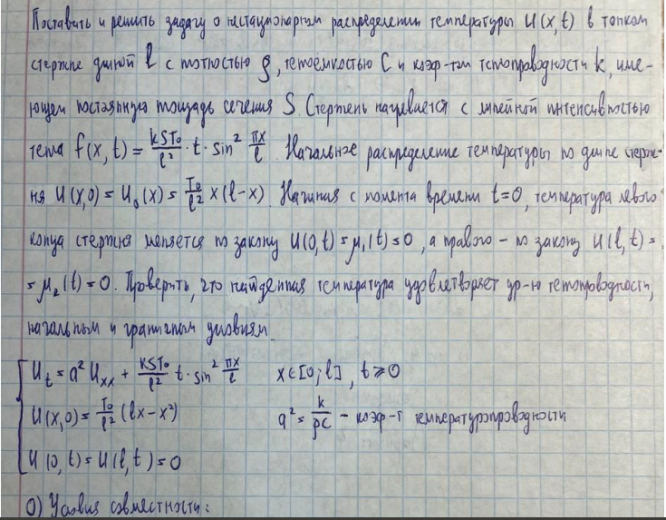 Поставить и решить задачу о нестационарном распределении температуры U(x,t) в тонком
стержне длиной l с плотностью ρ, теплоёмкостью C и коэф-том теплопроводности k, име-
ющем постоянную площадь сечения S. Стержень нагревается с линейной интенсивностью
тепла f(x,t) = kST₀/l² · t · sin² πx/l. Начальное распределение температуры по длине стерж-
ня U(x,0) = U₀(x) = T₀/l² x(l-x). Начиная с момента времени t=0, температура левого
конца стержня меняется по закону U(0,t) = μ₁(t) = 0, а правого - по закону U(l,t) =
= μ₂(t) = 0. Проверить, что найденная температура удовлетворяет ур-ю теплопроводности,
начальным и граничным условиям.
Uₜ = a² Uₓₓ + kST₀/l² t · sin² πx/l x∈[0;l], t ≥ 0
U(x,0) = T₀/l² (lx - x²) a² = k/ρc - коэф-т температуропроводности
U(0,t) = U(l,t) = 0
0) Условия совместности: